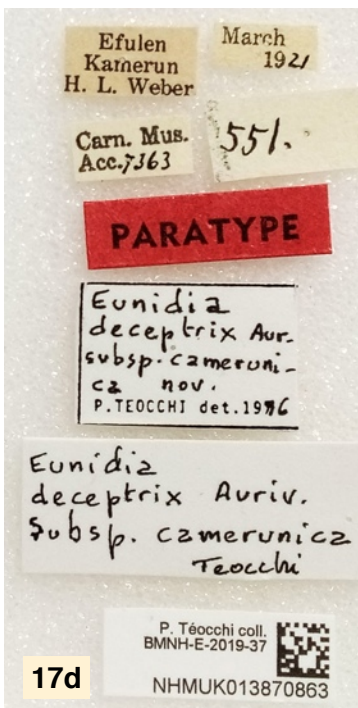 Efulen
Kamerun
H. L. Weber
March
1921
Carn. Mus.
Acc.7363
551.
PARATYPE
Eunidia
deceptrix Aur.
subsp. cameruni-
ca nov.
P.TEOCCHI det.1976
Eunidia
deceptrix Auriv.
Subsp. camerunica
Teocchi
P. Téocchi coll.
BMNH-E-2019-37
NHMUK013870863
17d